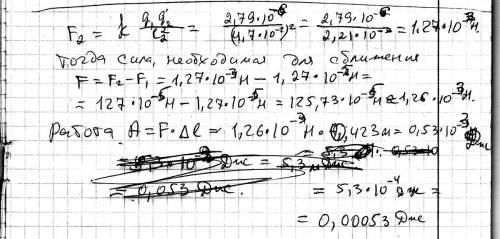 F₂ = k q₁q₂/r₂² = 2,79·10⁻⁶/(4,7·10⁻²)² = 2,79·10⁻⁶/2,21·10⁻³ = 1,27·10⁻³ Н.
Тогда сила, необходимая для сближения
F = F₂ − F₁ = 1,27·10⁻³Н − 1,27·10⁻⁵Н =
= 127·10⁻⁵Н − 1,27·10⁻⁵Н = 125,73·10⁻⁵Н ≈ 1,26·10⁻³Н.
Работа A = F·Δl = 1,26·10⁻³Н · 0,423м = 0,53·10⁻³ Дж
= 5,3·10⁻⁴ Дж =
= 0,00053 Дж